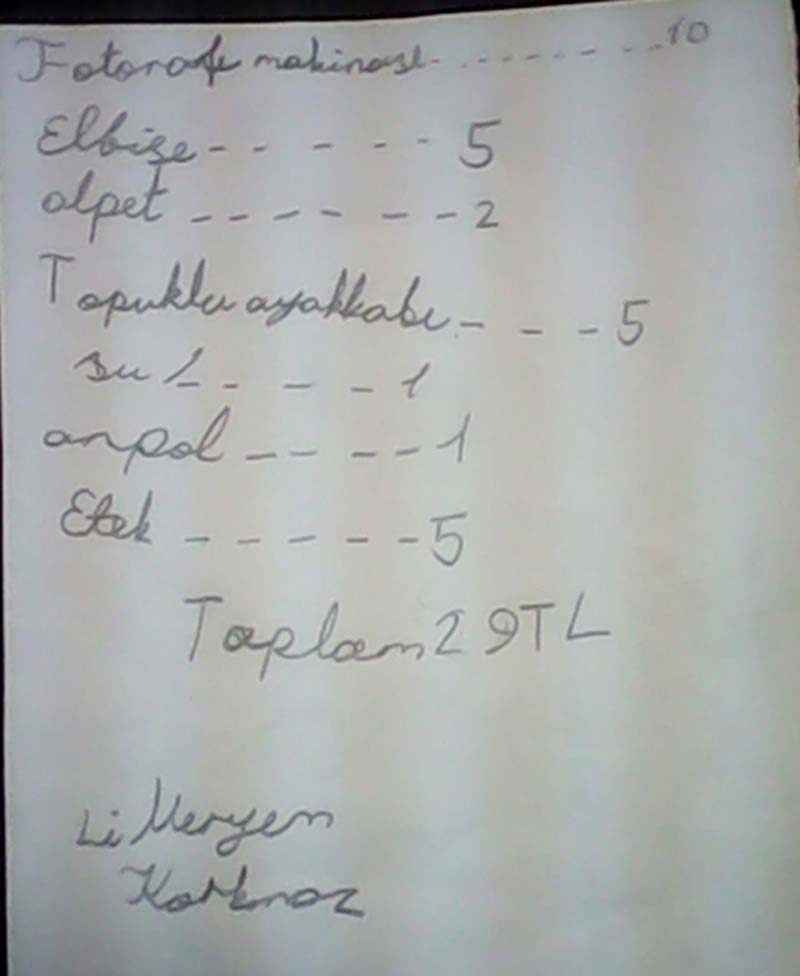 Fotoraf makinası.........10
Elbise----- 5
alpet ------2
Topuklu ayakkabı--- 5
su 1----1
anpol ----1
Etek -----5
Toplam 29TL
Li Meryem
Korkmaz